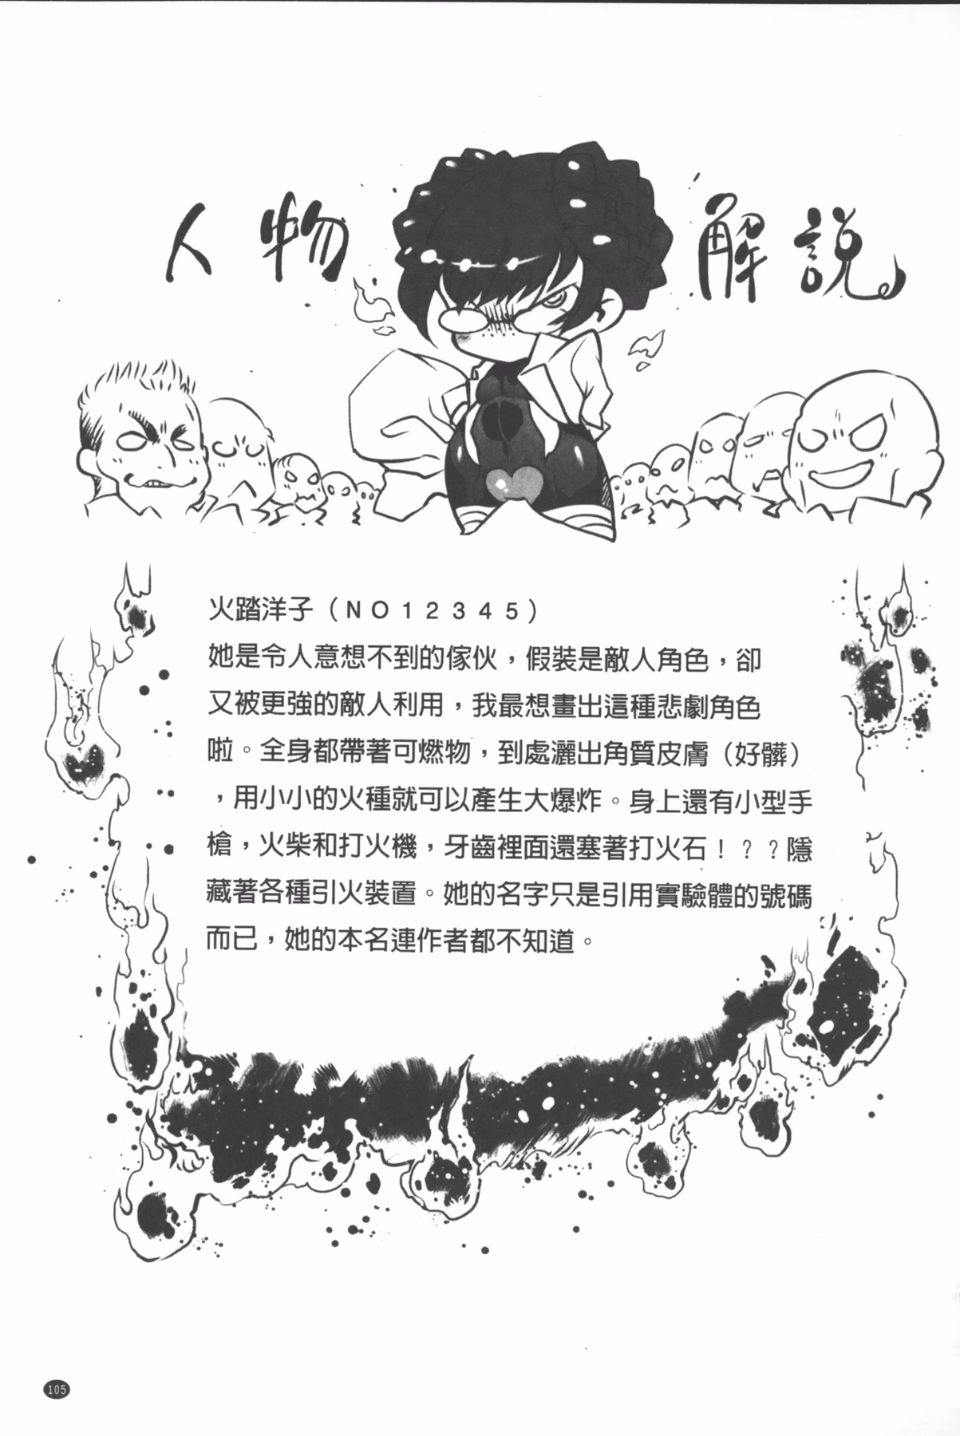 人物解說
火踏洋子（NO12345）
她是令人意想不到的傢伙，假裝是敵人角色，卻
又被更強的敵人利用，我最想畫出這種悲劇角色
啦。全身都帶著可燃物，到處灑出角質皮膚（好髒）
，用小小的火種就可以產生大爆炸。身上還有小型手
槍，火柴和打火機，牙齒裡面還塞著打火石！？？隱
藏著各種引火裝置。她的名字只是引用實驗體的號碼
而已，她的本名連作者都不知道。
105